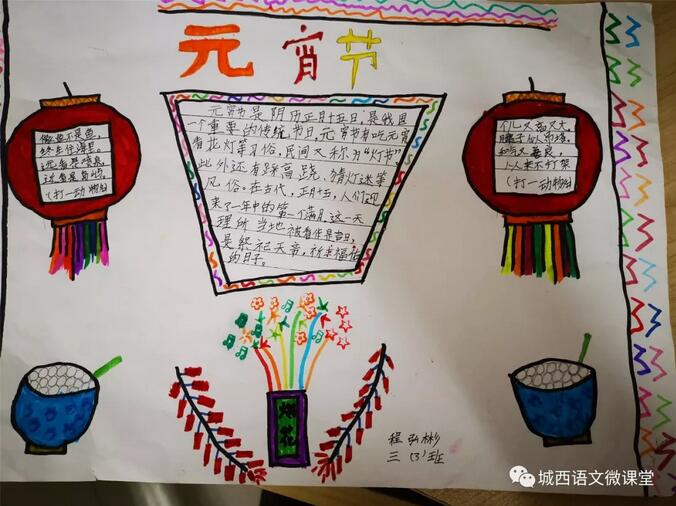 元宵节
元宵节是阴历正月十五日,是我国
一个重要的传统节日,元宵节有吃元宵
看花灯等习俗,民间又称为“灯节”
此外还有踩高跷、猜灯迷等
风俗。在古代,正月十五,人们迎
来了一年中的第一个满月,这一天
理所当地被看作是吉日,
是祭祀天帝,祈求福佑
的日子。
做鱼不是鱼,
终生住海里。
远看是喷泉,
近看是岛屿
(打一动物)
个儿又高又大
脖子似吊塔,
和气又善良,
从来不打架
(打一动物)
烟花
程弘彬
三(3)班
城西语文微课堂